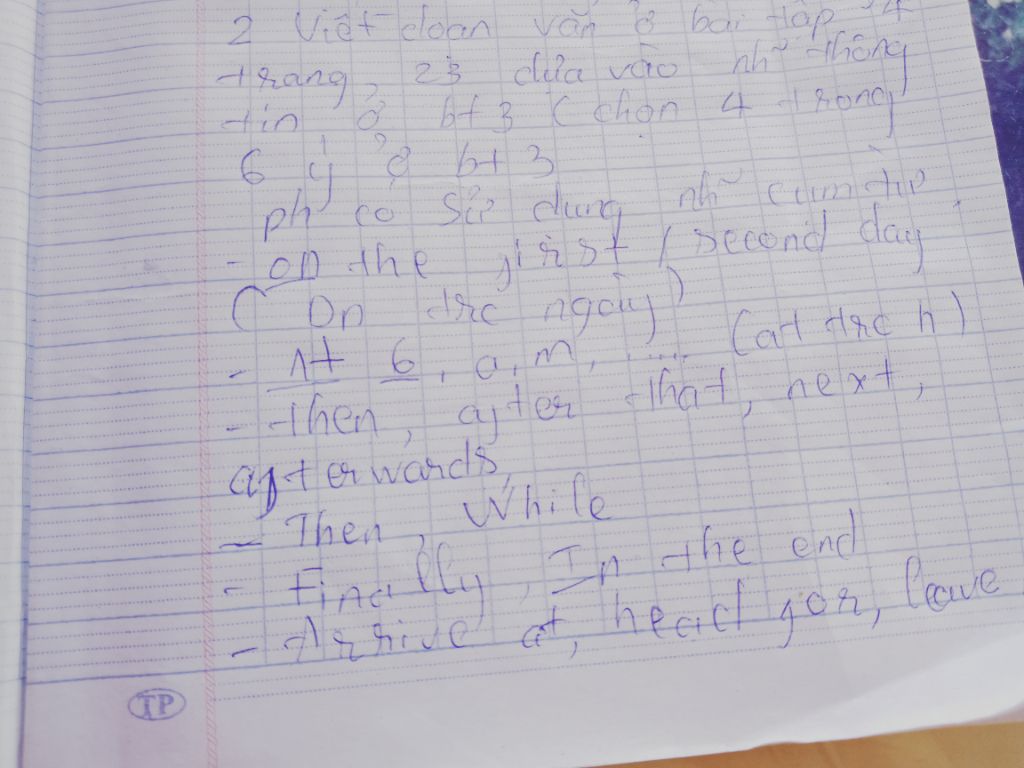 2 Viết đoạn văn ở bài tập 4
trang, 23 dựa vào nh~ thông
tin ở bt 3 (chọn 4 trong
6 ý ở bt 3
ph' có sử dụng nh~ cụm từ
- on the first / second day
( On trc ngày)
- At 6, a,m, ..... (at trc h)
- then, after that, next,
afterwards,
- Then, While
- Finally, In the end
- Arrive at, head for, leave
TP